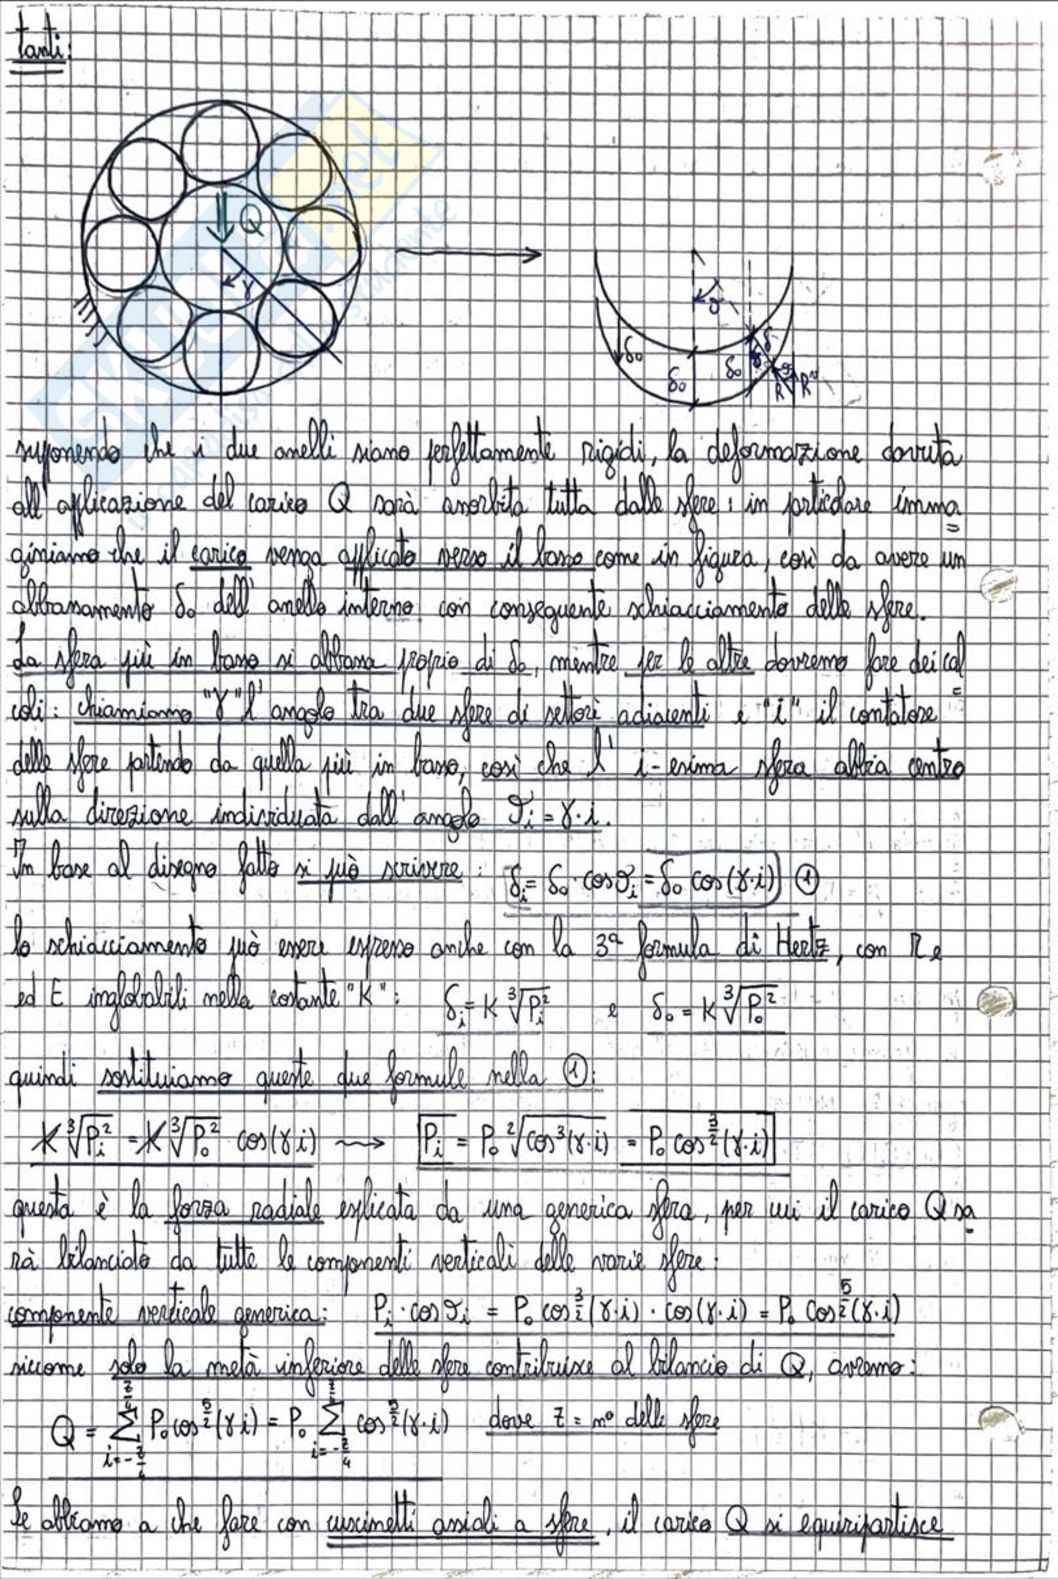 tanti:
Q
γ
δ₀
δ₀
δ₀
R
supponendo che i due anelli siano perfettamente rigidi, la deformazione dovuta
all'applicazione del carico Q sarà assorbita tutta dalle sfere: in particolare imma
giniamo che il carico venga applicato verso il basso come in figura, così da avere un
abbassamento δ₀ dell'anello interno con conseguente schiacciamento delle sfere.
La sfera più in basso si abbassa proprio di δ₀, mentre per le altre dovremo fare dei cal
coli: chiamiamo "γ" l'angolo tra due sfere di settori adiacenti e "i" il contatore
delle sfere partendo da quella più in basso, così che l' i-esima sfera abbia centro
sulla direzione individuata dall'angolo ϑᵢ = γ·i.
In base al disegno fatto si può scrivere: δᵢ = δ₀·cosϑᵢ = δ₀ cos(γ·i) ①
lo schiacciamento può essere espresso anche con la 3ª formula di Hertz, con R e
ed E inglobabili nella costante "K": δᵢ = K ∛Pᵢ² e δ₀ = K ∛P₀²
quindi sostituiamo queste due formule nella ①:
K ∛Pᵢ² = K ∛P₀² cos(γ·i) ⟶ Pᵢ = P₀ ²√cos³(γ·i) = P₀ cos^(3/2)(γ·i)
questa è la forza radiale esplicata da una generica sfera, per cui il carico Q sa
rà bilanciato da tutte le componenti verticali delle varie sfere:
componente verticale generica: Pᵢ·cosϑᵢ = P₀ cos^(3/2)(γ·i)·cos(γ·i) = P₀ cos^(5/2)(γ·i)
siccome solo la metà inferiore delle sfere contribuisce al bilancio di Q, avremo:
Q = Σ_{i=-z/4}^{z/4} P₀ cos^(5/2)(γi) = P₀ Σ_{i=-z/4}^{z/4} cos^(5/2)(γ·i) dove z = n° delle sfere
Se abbiamo a che fare con cuscinetti assiali a sfere, il carico Q si equiripartisce